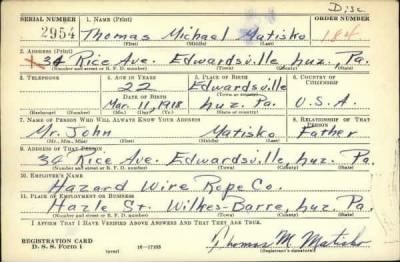 Disc
SERIAL NUMBER 1. NAME (Print) ORDER NUMBER
2954 Thomas Michael Matisko 184
(First) (Middle) (Last)
2. ADDRESS (Print)
34 Rice Ave. Edwardsville, Luz. Pa.
(Number and street or R. F. D. number) (Town) (County) (State)
3. TELEPHONE 4. AGE IN YEARS 5. PLACE OF BIRTH 6. COUNTRY OF CITIZENSHIP
22 Edwardsville
DATE OF BIRTH (Town or county)
Mar. 11, 1918 Luz. Pa. U.S.A.
(Exchange) (Number) (Mo.) (Day) (Yr.) (State or country)
7. NAME OF PERSON WHO WILL ALWAYS KNOW YOUR ADDRESS 8. RELATIONSHIP OF THAT PERSON
Mr. John Matisko Father
(Mr., Mrs., Miss) (First) (Middle) (Last)
9. ADDRESS OF THAT PERSON
34 Rice Ave. Edwardsville, Luz. Pa.
(Number and street or R. F. D. number) (Town) (County) (State)
10. EMPLOYER'S NAME
Hazard Wire Rope Co.
11. PLACE OF EMPLOYMENT OR BUSINESS
Hazle St. Wilkes-Barre, Luz. Pa.
(Number and street or R. F. D. number) (Town) (County) (State)
I AFFIRM THAT I HAVE VERIFIED ABOVE ANSWERS AND THAT THEY ARE TRUE.
REGISTRATION CARD
D. S. S. Form 1 (over) 16-17105 Thomas M. Matisko
(Registrant's signature)